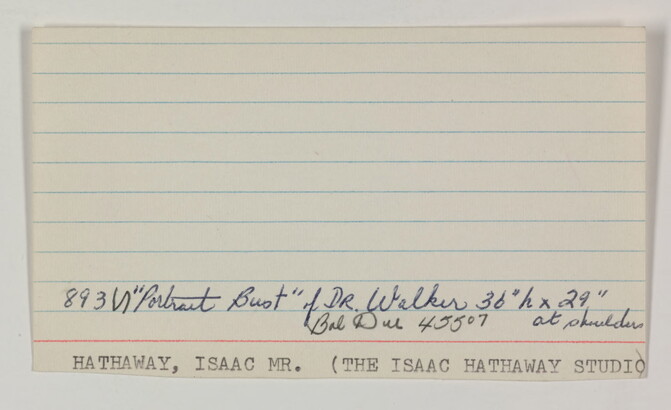 893 "Portrait Bust" of DR. Walker 36"h x 29"
Bal Due 455⁰⁷ at shoulders
HATHAWAY, ISAAC MR. (THE ISAAC HATHAWAY STUDIO